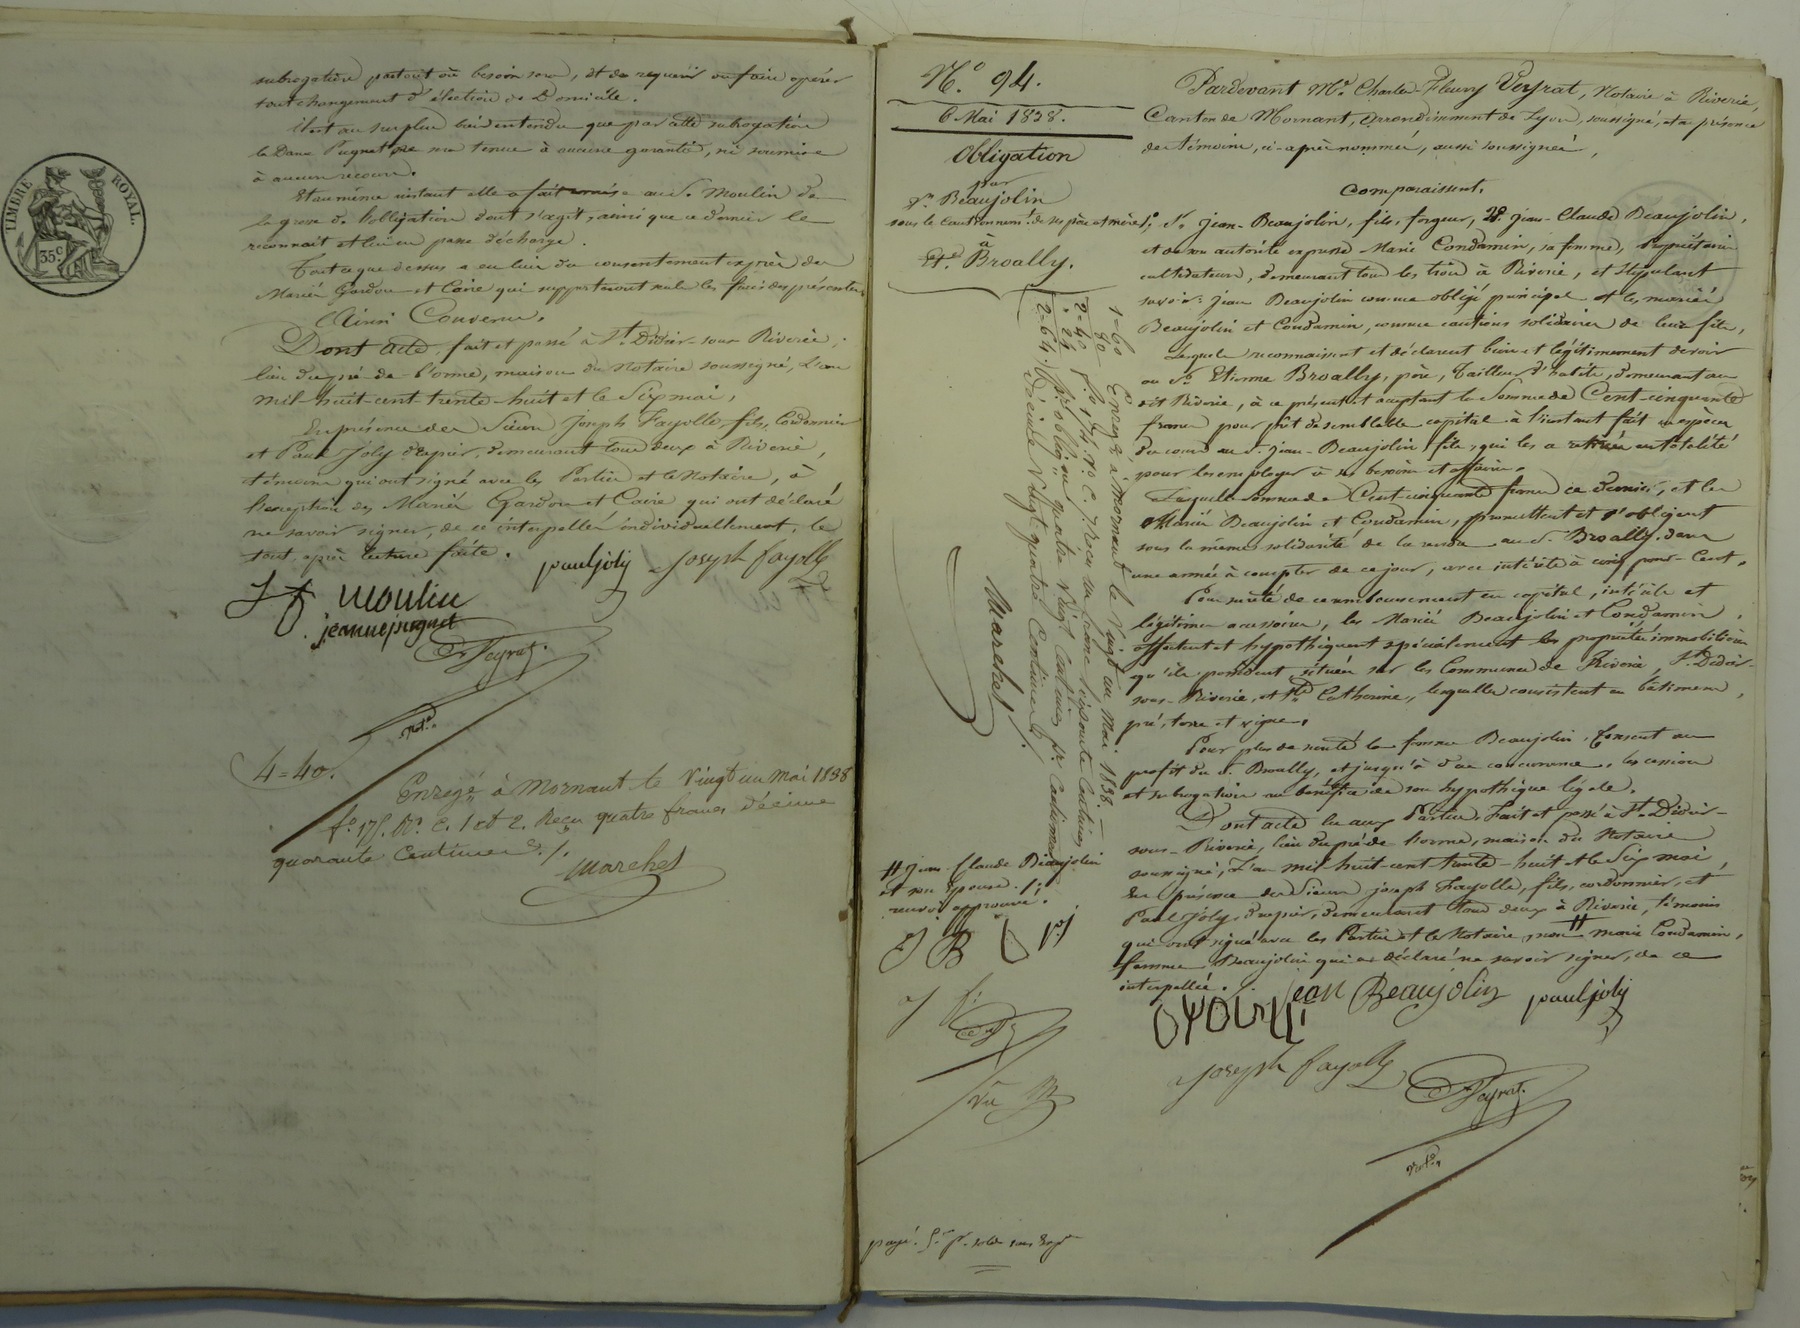 subrogation partout où besoin sera, et de requérir ou faire opérer
tout changement d'élection de Domicile.
Il est au surplus bien entendu que par cette subrogation
la Dame Pugnet ne sera tenue à aucune garantie, ni soumise
à aucun recours.
Et au même instant elle a fait remise au S. Moulin de
la grosse de l'obligation dont s'agit, ainsi que ce dernier le
reconnait et lui en passe décharge.
Tout ce que dessus a eu lieu du consentement exprès des
Mariés Gardon et Caire qui supporteront seuls les frais des présentes
Ainsi Convenu.
Dont acte, fait et passé à St. Didier-sous-Riverie,
lieu du pré-de-l'orme, maison du Notaire soussigné, L'an
mil-huit-cent-trente-huit et le Six mai,
En présence des Sieurs Joseph Fayolle, fils, Cordonnier
et Paul Joly drapier, demeurant tous deux à Riverie,
témoins qui ont signé avec les Parties et le Notaire, à
l'exception des Mariés Gardon et Caire qui ont déclaré
ne savoir signer, de ce interpellés individuellement, le
tout après lecture faite.
paul joly joseph fayolle
Moulin
jeanne pugnet
Veyrat
Not.
4=40.
Enregé à Mornant le Vingt un Mai 1838
fo. 175. Vo. C. 1 et 2. Reçu quatre francs décime
quarante Centimes ./.
Marchel
TIMBRE ROYAL.
35 c.
No. 94.
6 Mai 1838.
Obligation
par
Beaujolin
sous le Cautionnemt. de ses père et mère
à
Et. Broally.
Pardevant Me. Charles-Fleury Veyrat, Notaire à Riverie,
Canton de Mornant, arrondissement de Lyon, soussigné, et en présence
des témoins, ci-après nommés, aussi soussignés,
Comparaissent,
1o. Sr. Jean-Beaujolin, fils, forgeur, 2o. Jean-Claude Beaujolin,
et de son autorité expresse Marie Condamin, sa femme, Propriétaires
cultivateurs, demeurant tous les trois à Riverie, et stipulant
savoir: Jean Beaujolin comme obligé principal et les mariés
Beaujolin et Condamin, comme cautions solidaires de leur fils,
Lesquels reconnaissent et déclarent bien et légitimement devoir
au Sr. Etienne Broally, père, Tailleur d'habits, demeurant au
dit Riverie, à ce présent et acceptant la Somme de Cent-cinquante
francs pour prêt de semblable capital à l'instant fait en espèces
du cours au S. Jean-Beaujolin fils, qui les a retirés en totalité
pour les employer à ses besoins et affaires.
Laquelle somme de Cent-cinquante francs ce dernier, et les
Mariés Beaujolin et Condamin, promettent et s'obligent
sous la même solidarité de la rendre au S. Broally dans
une année à compter de ce jour, avec intérêts à cinq pour-Cent.
Pour sureté de ce remboursement en capital, intérêts et
légitimes accessoires, les Mariés Beaujolin et Condamin,
affectent et hypothèquent spécialement les propriétés immobilières
qu'ils possèdent situées sur les Communes de Riverie, St. Didier-
sous-Riverie, et Ste. Catherine, lesquelles consistent en bâtiments,
pré, terre et vigne.
Pour plus de sureté la femme Beaujolin, Consent au
profit du S. Broally, et jusqu'à due concurrence, les cession
et subrogation au bénéfice de son hypothèque légale.
Dont acte lu aux Parties, Fait et passé à St. Didier-
sous-Riverie, lieu du pré-de-l'orme, maison du Notaire
soussigné, L'an mil-huit-cent-trente-huit et le Six mai,
En présence des sieurs Joseph Fayolle, fils, cordonnier, et
Paul Joly, drapier, demeurant tous deux à Riverie, témoins
qui ont signé avec les Parties et le Notaire, non # Marie Condamin,
femme Beaujolin qui a déclaré ne savoir signer, de ce
interpellée.
Jean Beaujolin paul joly
joseph fayolle
Veyrat.
Not.
Enregé à Mornant le Vingt un Mai 1838.
fo. 174. Vo. C. 7. Reçu un franc soixante Centimes
pr. obligion quatre Vingt Centimes pr. Cautionnemt
Décime Vingt-quatre Centimes ./.
Marchel
1-60
80
2-40
24
2-64.
# Jean-Claude Beaujolin
et son Epouse ./.
renvoi approuvé.
J B
J f
Vu
payé.